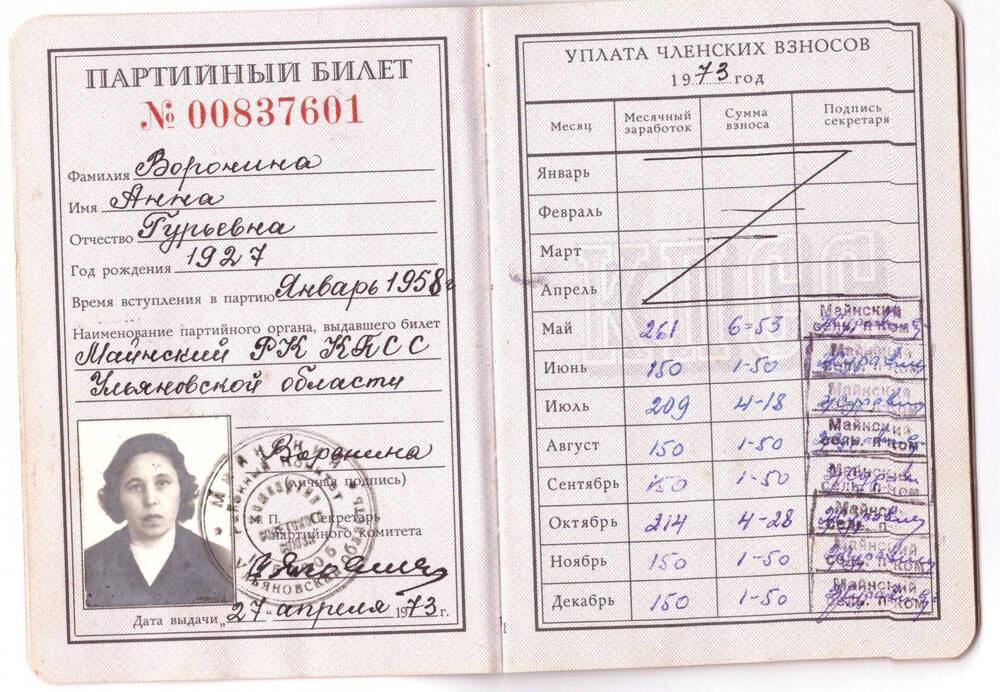 ПАРТИЙНЫЙ БИЛЕТ
№ 00837601
Фамилия Воронина
Имя Анна
Отчество Гурьевна
Год рождения 1927
Время вступления в партию Январь 1958 г
Наименование партийного органа, выдавшего билет
Майнский РК КПСС
Ульяновской области
Воронина
(личная подпись)
П. Секретарь
партийного комитета
Дата выдачи „27" апреля 1973 г.
УПЛАТА ЧЛЕНСКИХ ВЗНОСОВ
1973 год
Месяц Месячный заработок Сумма взноса Подпись секретаря
Январь
Февраль
Март
Апрель
КПСС
Май 261 6=53 Майнский сель. п-ком
Июнь 150 1-50 Майнский
Июль 209 4-18 Майнский
Август 150 1-50 Майнский сель. п-ком
Сентябрь 150 1-50 Майнский сель. п-ком
Октябрь 214 4-28 Майнский сель. п
Ноябрь 150 1-50 Майнский сель. п-ком
Декабрь 150 1-50 Майнский сель. п-ком